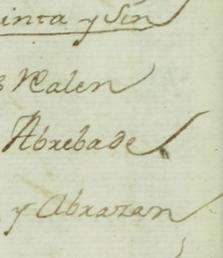 inta y Sin
s Valen
Abrebade
y Abrazan